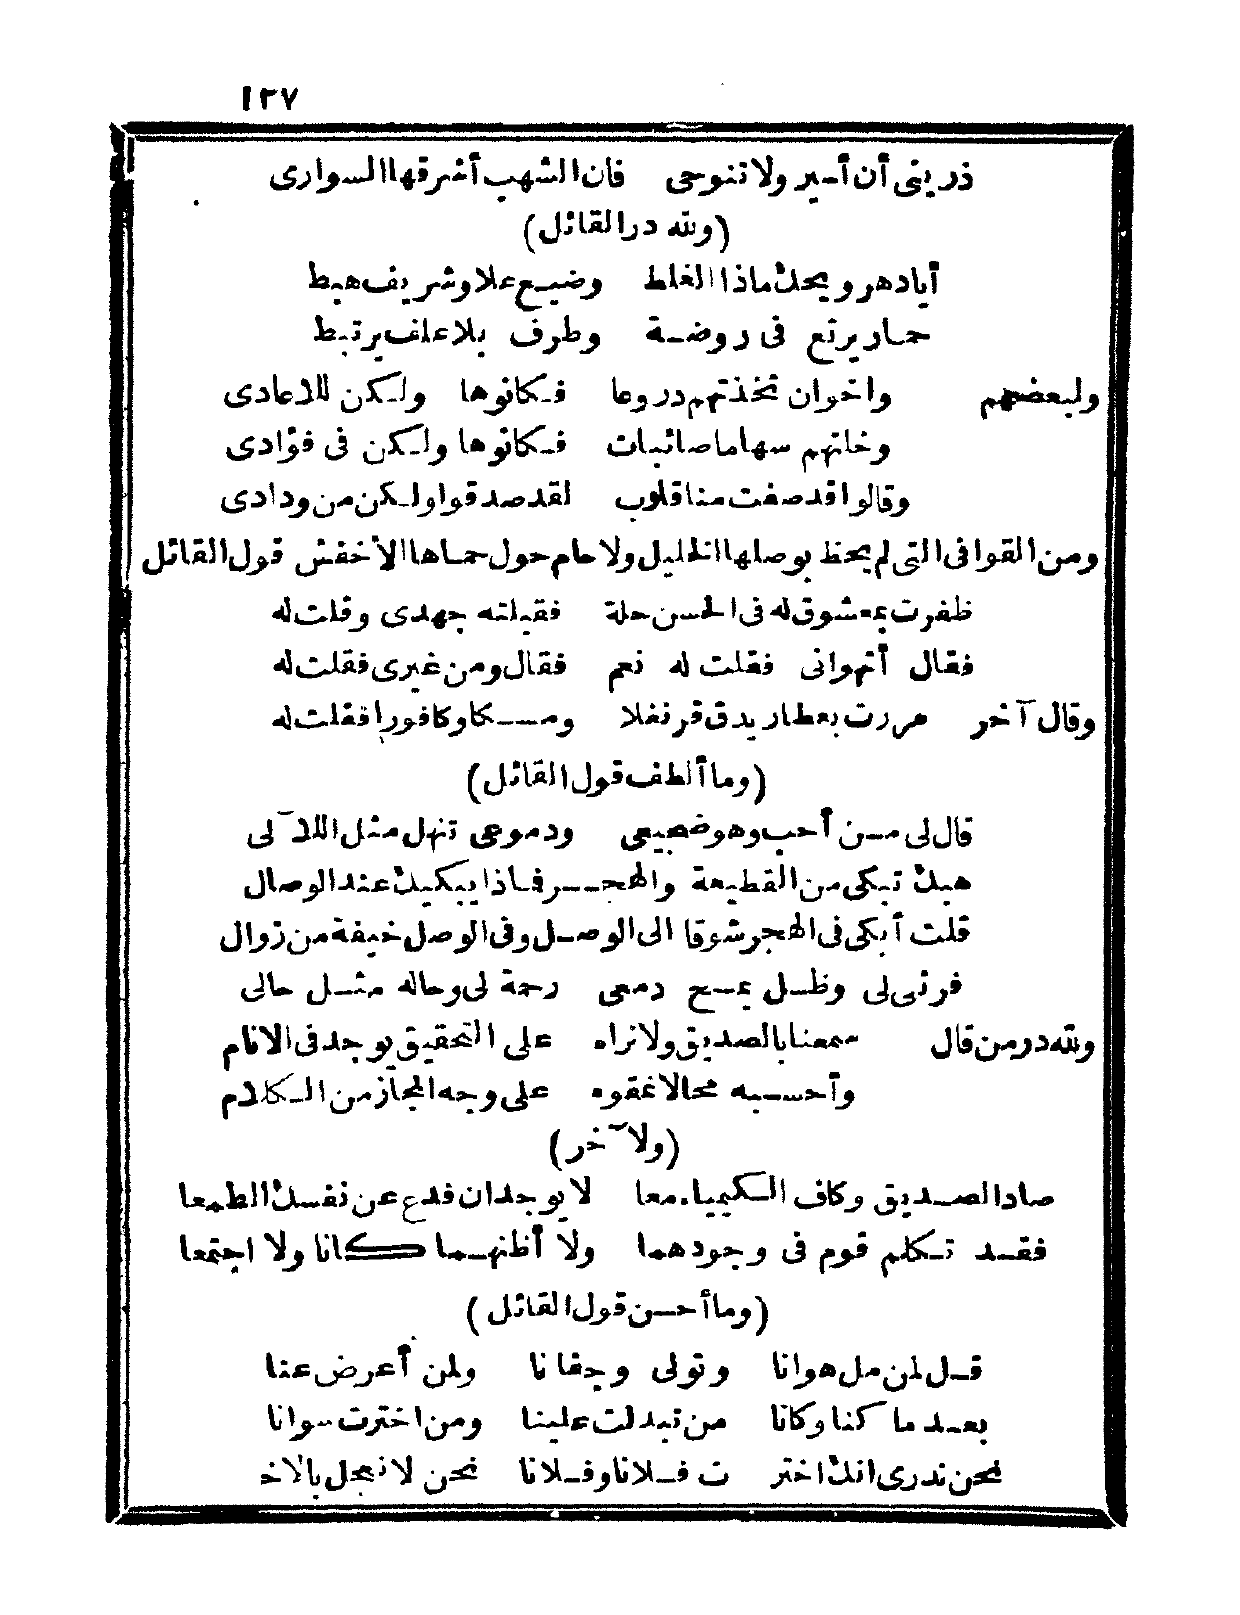 ١٣٧
ذريني أن أسير ولا تنوحي فان الشهب أشرقها السواري
(ولله در القائل)
أيا دهر ويحك ماذا الغلط وضيع علا وشريف هبط
حمار يرتع في روضة وطرف بلا علف يرتبط
ولبعضهم واخوان تخذتهم دروعا فكانوها ولكن للاعادي
وخلتهم سهاما صائبات فكانوها ولكن في فؤادي
وقالوا قد صفت منا قلوب لقد صدقوا ولكن من ودادي
ومن القوافي التي لم يحظ بوصلها الخليل ولا حام حول حماها الأخفش قول القائل
ظفرت بمعشوق له في الحسن حلة فقبلته جهدي وقلت له
فقال أتهواني فقلت له نعم فقال ومن غيري فقلت له
وقال آخر مررت بعطار يدق قرنفلا ومسكا وكافورا فقلت له
(وما ألطف قول القائل)
قال لي من أحب وهو ضجيعي ودموعي تنهل مثل اللآلي
هبك تبكي من القطيعة والهجر فماذا يبكيك عند الوصال
قلت أبكي في الهجر شوقا الى الوصل وفي الوصل خيفة من زوال
فرثى لي وظل يمسح دمعي رحمة لي وحاله مثل حالي
ولله در من قال سمعنا بالصديق ولا نراه على التحقيق يوجد في الانام
وأحسبه محالا غقوه على وجه المجاز من الكلام
(ولآخر)
صاد الصديق وكاف الكيمياء معا لا يوجدان فدع عن نفسك الطمعا
فقد تكلم قوم في وجودهما ولا أظنهما كانا ولا اجتمعا
(وما أحسن قول القائل)
قل لمن مل هوانا وتولى وجفانا ولمن أعرض عنا
بعد ما كنا وكانا من تبدلت علينا ومن اخترت سوانا
نحن ندري انك اختر ت فلانا وفلانا نحن لا نعجل بالاخ